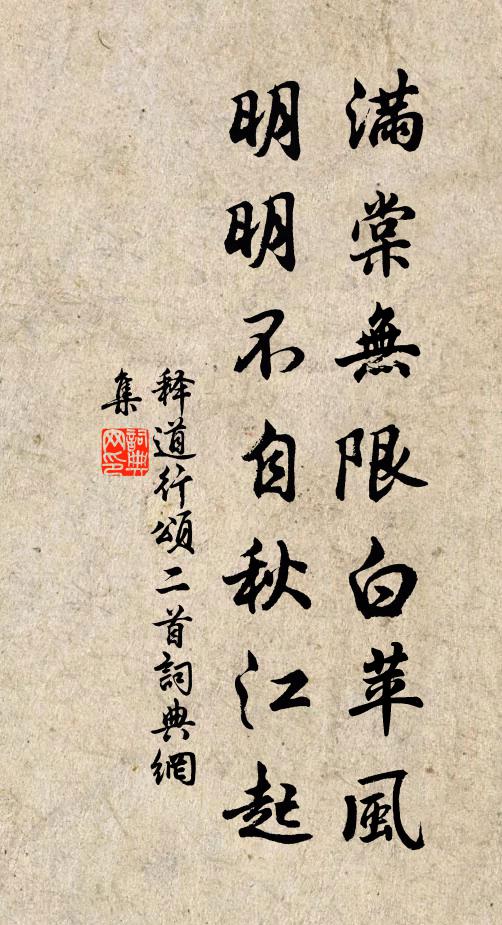 满棠無限白苹風
明明不自秋江起
释道行頌二首詞典網
集
詞典
网印